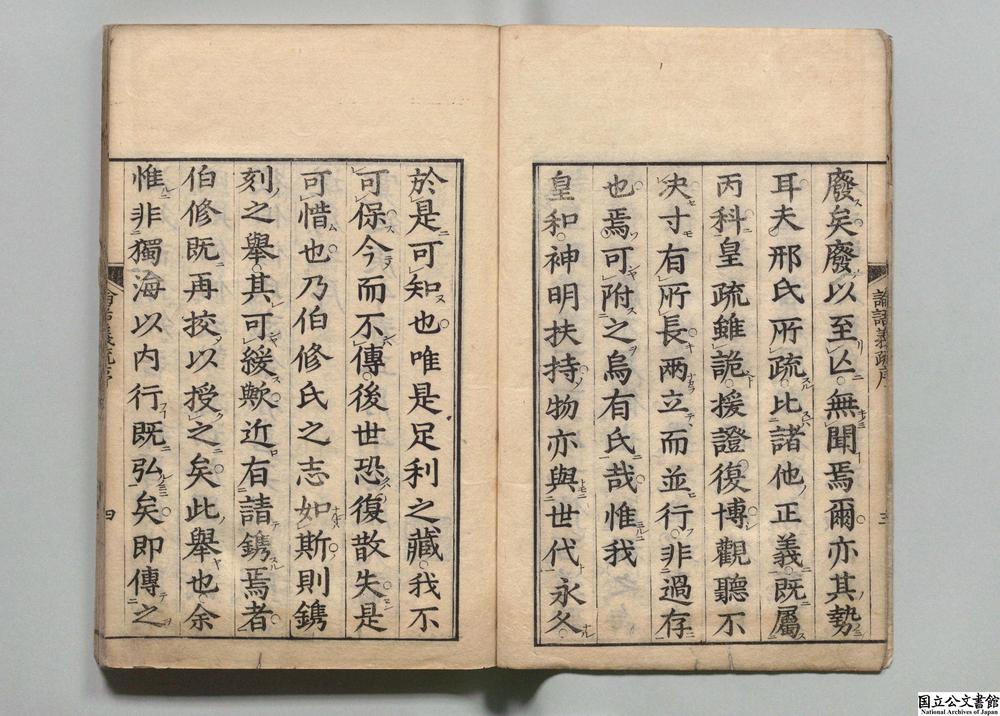 廢矣廢以至亾無聞焉爾亦其勢
耳夫邢氏所疏比諸他正義既屬
丙科皇疏雖詭援證復博觀聽不
决寸有所長兩立而並行非過存
也焉可附之烏有氏哉惟我
皇和神明扶持物亦與世代永久
論語義疏序
三
於是可知也唯是足利之藏我不
可保今而不傳後世恐復散失是
可惜也乃伯修氏之志如斯則鐫
刻之舉其可緩歟近有請鐫焉者
伯修既再挍以授之矣此舉也余
惟非獨海以內行既弘矣即傳之
四
国立公文書館
National Archives of Japan